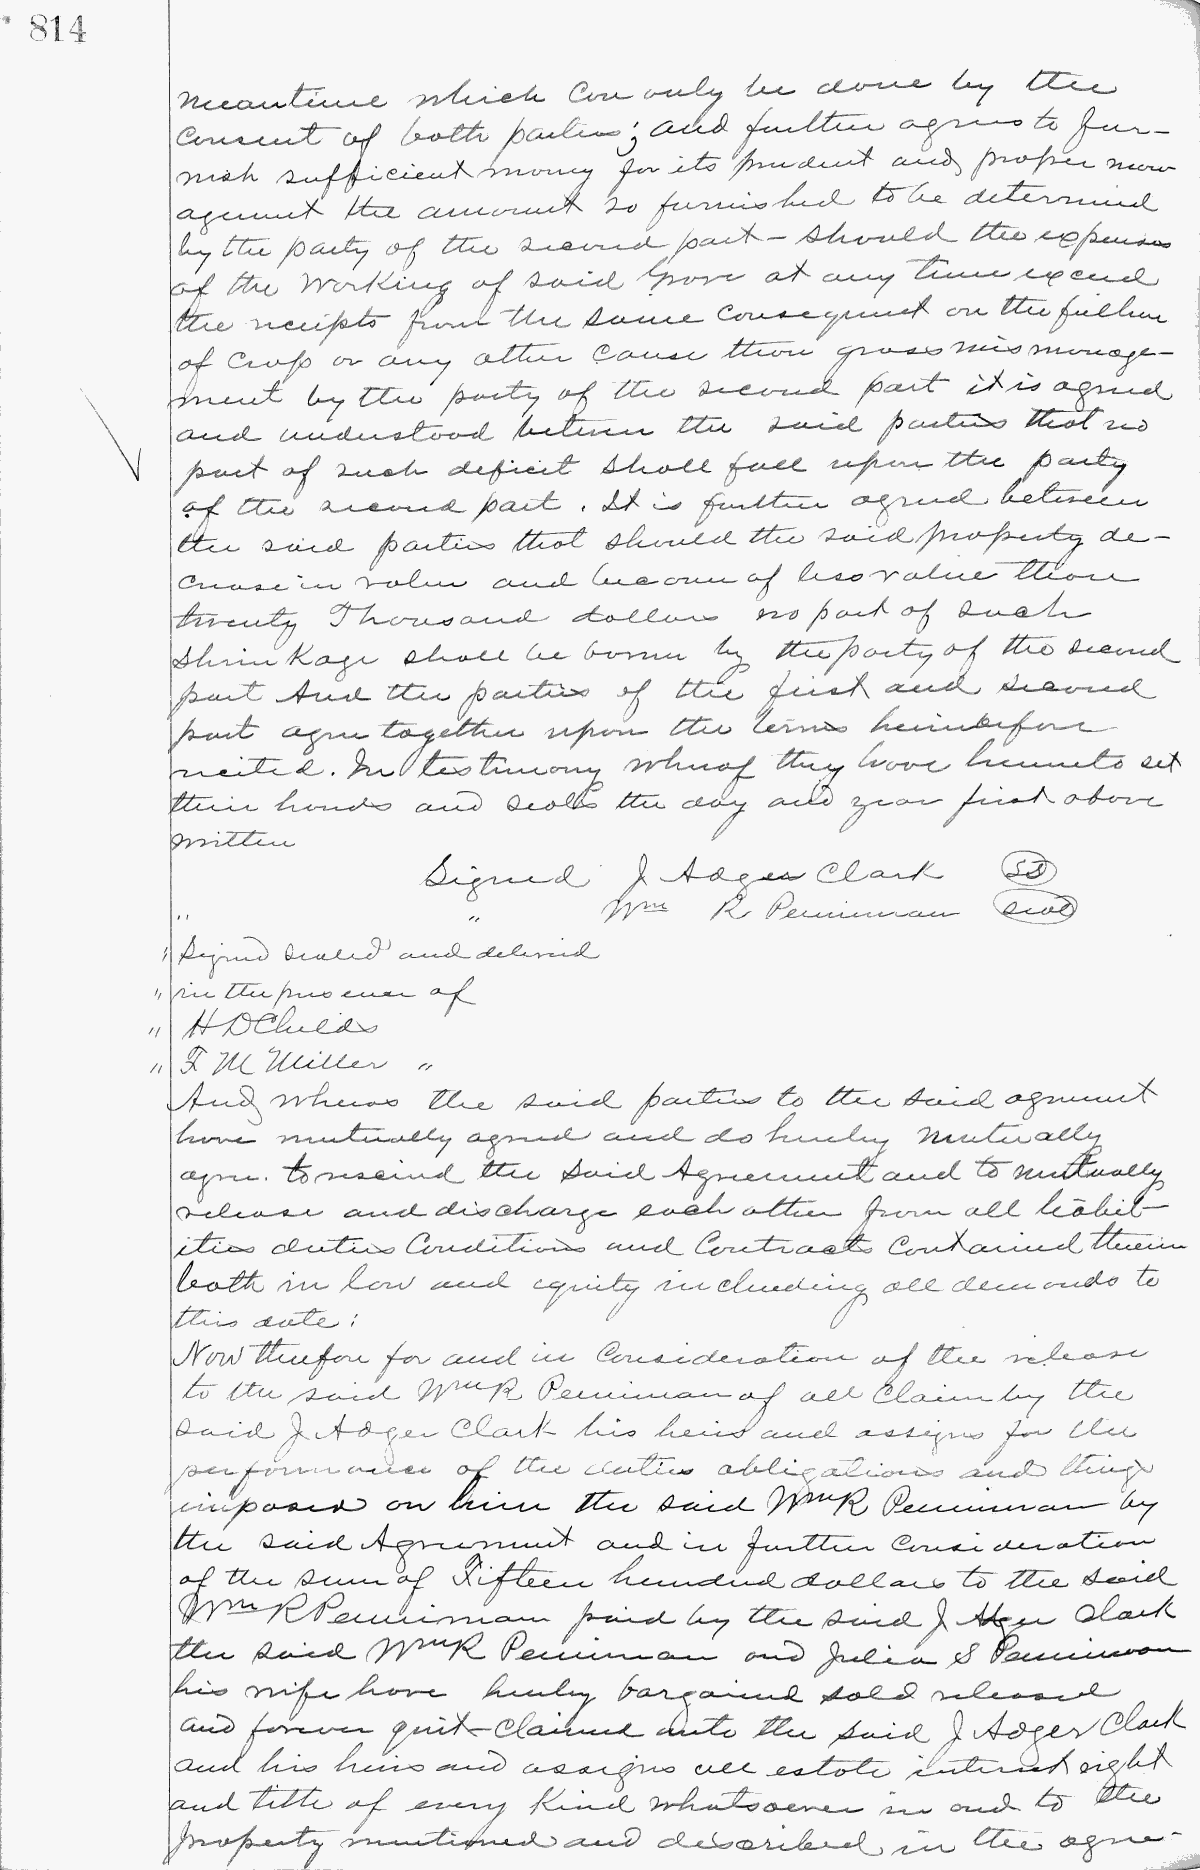 814
meantime which can only be done by the
consent of both parties; and further agrees to fur-
nish sufficient money for its prudent and proper man-
agement the amount so furnished to be determined
by the party of the second part - should the expenses
of the working of said Grove at any time exceed
the receipts from the same consequent on the failure
of crop or any other cause than gross mismanage-
ment by the party of the second part it is agreed
and understood between the said parties that no
part of such deficit shall fall upon the party
of the second part. It is further agreed between
the said parties that should the said property de-
crease in value and become of less value than
twenty Thousand dollars no part of such
Shrinkage shall be borne by the party of the second
part And the parties of the first and second
part agree together upon the terms hereinbefore
recited. In testimony whereof they have hereunto set
their hands and seals the day and year first above
written
Signed J Adger Clark Sd
" " Wm R Penniman Seal
" Signed sealed and delivered
" in the presence of
" H D Childs
" F M Miller "
And whereas the said parties to the said agreement
have mutually agreed and do hereby mutually
agree. to rescind the said Agreement and to mutually
release and discharge each other from all liabil-
ities duties Conditions and Contracts Contained therein
both in law and equity including all demands to
this date:
Now therefore for and in Consideration of the release
to the said Wm R Penniman of all Claim by the
said J Adger Clark his heirs and assigns for the
performance of the duties obligations and things
imposed on him the said Wm R Penniman by
the said Agreement and in further consideration
of the sum of Fifteen hundred dollars to the said
Wm R Penniman paid by the said J Adger Clark
the said Wm R Penniman and Julia S Penniman
his wife have hereby bargained sold released
and forever quit-claimed unto the said J Adger Clark
and his heirs and assigns all estate interest right
and title of every Kind whatsoever in and to the
Property mentioned and described in the agree-